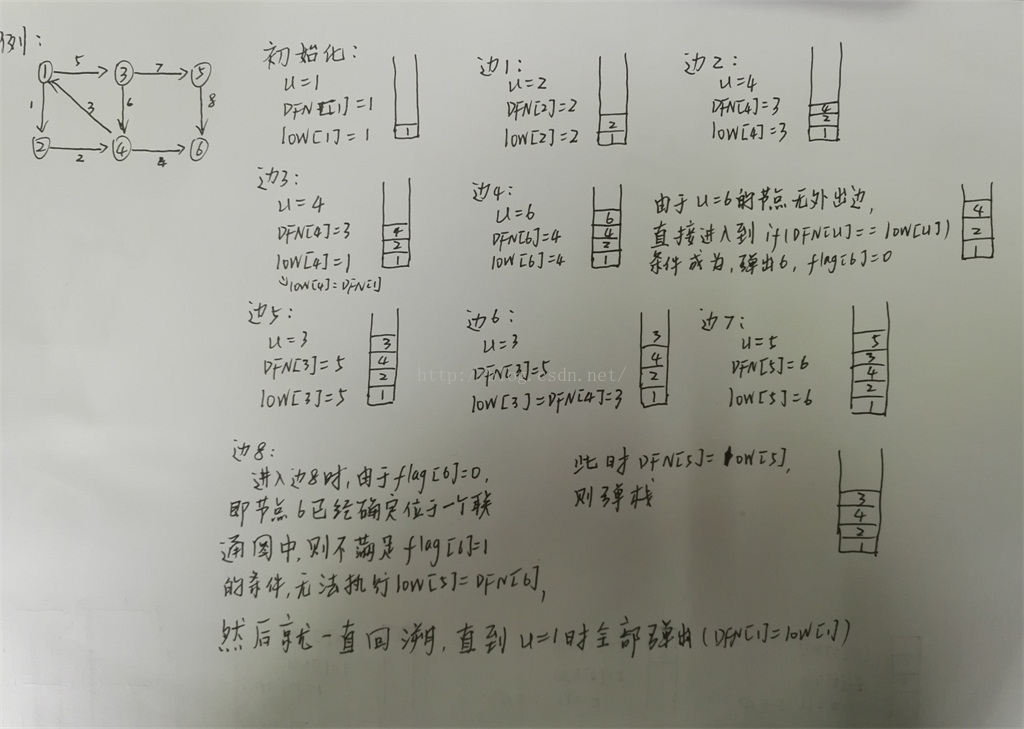 例:
1 5 3 7 5
1 3 6 8
2 2 4 4 6
初始化:
u=1
DFN[1]=1
low[1]=1
1
边1:
u=2
DFN[2]=2
low[2]=2
2
1
边2:
u=4
DFN[4]=3
low[4]=3
4
2
1
边3:
u=4
DFN[4]=3
low[4]=1
↳low[4]=DFN[1]
4
2
1
边4:
u=6
DFN[6]=4
low[6]=4
6
4
2
1
由于u=6的节点无外出边,
直接进入到if(DFN[u]==low[u])
条件成为,弹出6,flag[6]=0
4
2
1
边5:
u=3
DFN[3]=5
low[3]=5
3
4
2
1
边6:
u=3
DFN[3]=5
low[3]=DFN[4]=3
3
4
2
1
边7:
u=5
DFN[5]=6
low[5]=6
5
3
4
2
1
边8:
进入边8时,由于flag[6]=0,
即节点6已经确定位于一个联
通图中,则不满足flag[6]=1
的条件,无法执行low[5]=DFN[6],
此时DFN[5]=low[5],
则弹栈
3
4
2
1
然后就一直回溯,直到u=1时全部弹出(DFN[1]=low[1])